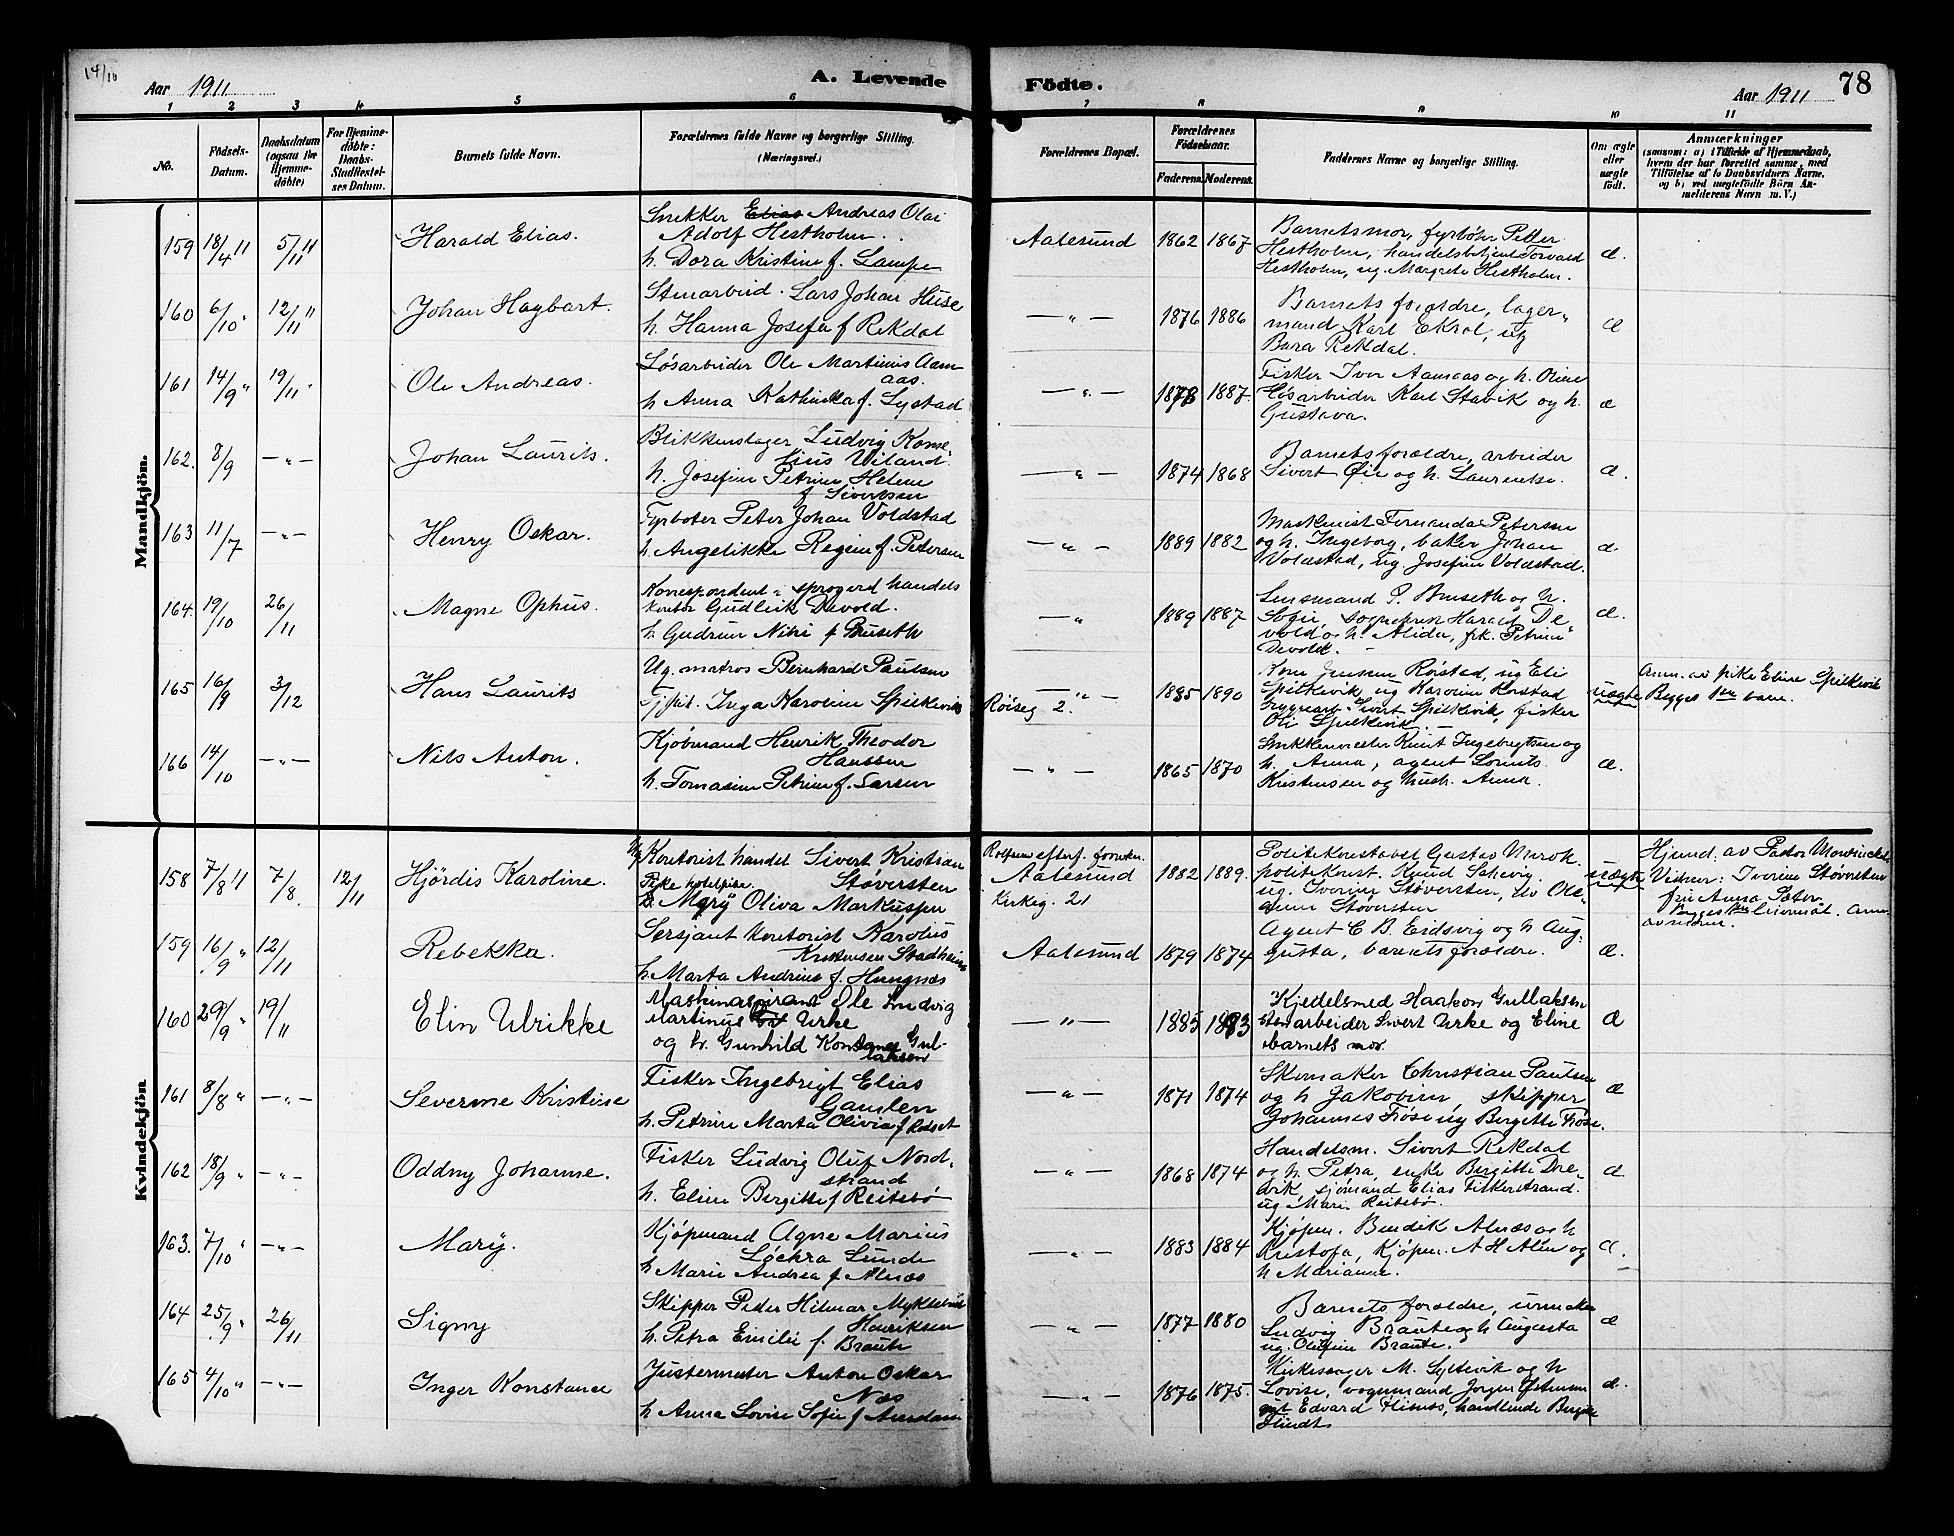 14/10
Aar 1911
A. Levende
Födte.
Aar 1911
78
1 2 3 4 5 6 7 8 9 10 11
No.
Födsels-Datum.
Daabsdatum (ogsaa for Hjemmedöbte)
For Hjemmedöbte: Daabs-Stadfæstelses Datum.
Barnets fulde Navn.
Forældrenes fulde Navne og borgerlige Stilling. (Næringsvei.)
Forældrenes Bopæl.
Forældrenes Födselsaar.
Faderens. Moderens.
Faddernes Navne og borgerlige Stilling.
Om ægte eller uægte födt.
Anmærkninger
(saasom: a) i Tilfælde af Hjemmedaab,
hvem der har forrettet samme, med
Tilföielse af to Daabsvidners Navne,
og b) ved uægtefödte Börn Anmelderens Navn m. V.)
Mandkjön.
159 18/4 11 5/11 11
Harald Elias.
Snekker Elias Andreas Olai
Adolf Hestholm.
h. Dora Kristine f. Lampe
Aalesund 1862 1867
Barnets mor, fyrbøter Petter
Hestholm, handelsbetjent Torvald
Hestholm, ug. Margrete Hestholm.
æ.
160 6/10 " 12/11 "
Johan Hagbart.
Stenarbeid. Lars Johan Huse
h. Hanna Josefa f Rekdal
— " — 1876 1886
Barnets forældre, lager-
mand Karl Ekrol, ug
Bara Rekdal.
æ
161 14/9 " 19/11 "
Ole Andreas.
Løsarbeider Ole Martinus Aam
aas.
h Anna Kathinka f. Lystad
— " — 1878 1887.
Fisker Iver Aamaas og h. Oline
Løsarbeider Karl Stavik og h.
Gustava.
æ
162. 8/9 — " —
Johan Laurits.
Blikkenslager Ludvig Konse-
lius Viland.
h. Josefine Petrine Helene
f Sivertsen
— " — 1874 1868
Barnets forældre, arbeider
Sivert Øie og h. Laurentse.
æ.
163 11/7 — " —
Henry Oskar.
Fyrbøter Peter Johan Voldstad
h. Angelikke Regine f. Petersen
— " — 1889 1882
Maskinist Fernanda Petersen
og h. Ingeborg, baker Johan
Voldstad, ug. Josefine Voldstad.
æ
164. 19/10 26/11
Magne Ophus.
Korrespondent i sprogerd handels
kontor Gudleik Devold.
h. Gudrun Niki f Bruseth
" 1889 1887
Lensmand P. Bruseth og h.
Sofie, sogneprest Harald De
vold og h. Alida, frk. Petrine
Devold.
æ.
165 16/9 3/12
Hans Laurits
Ug. matros Bernhard Paulsen
Tjpik. Inga Karoline Spilkevik
— " — Røiseg 2. 1885 1890
Kone Jensen Rørstad, ug Eli
Spilkevik, ug Karoline Rørstad
Sivert Spilkevik, fisker
Ole Spilkevik.
uægte
Anm. av pike Eline Spilkevik
Begges 1ste barn.
166 14/10 — " —
Nils Anton.
Kjøbmand Henrik Theodor
Hanssen
h. Tomasine Petrine f. Larsen
— " — 1865 1870
Snekkermester Knut Ingebrigtsen og
h. Anna, agent Lorents
Kristensen og hust. Anna.
æ.
Kvindekjön
158 7/8 11 7/8. 12/11
Hjördis Karoline.
Ug Kontorist handel Sivert Kristian
Støversten
Pike hotelpike.
Mary Oliva Markussen
Rolfsens efterf. forretn.
Aalesund
Kirkeg. 21
1882 1889.
Politikonstabel Gustav Merok.
politikonst. Knud Sakevig.
ug. Iverine Støversten, elev Ole-
anna Støversten
uægte
Hjemd. av Pastor Mowinckel
Vidner: Iverine Støversten
fru Anna Sæter.
Begges 1ste leiermål. Anm.
av moren.
159 16/9 " 12/11
Rebekka.
Sersjant kontorist Karolus
Kristensen Stadheim
h. Marta Andrine f. Hungnes
Aalesund 1879 1874
Agent C B. Eidsvig og h Aug-
gusta, barnets forældre.
æ.
160 29/9 " 19/11
Elin Ulrikke
Maskinaspirant Ole Ludvig
Martinus Urke
og h. Gunhild Konstanse Gul-
laksen
— " — 1885 1883
Kjedelsmed Haakon Gullaksen
stenarbeider Sivert Urke og Eline
barnets mor.
æ
161 8/8 " — " —
Severine Kristine
Fisker Ingebrigt Elias
Gamlen
h. Petrine Marta Olivia f Rødset
— " — 1871 1874
Skomaker Christian Paulsen
og h Jakobine, skipper
Johannes Frøse ug Bergitte Frøse.
æ
162 18/9 " — " —
Oddny Johanne.
Fisker Ludvig Oluf Nord-
strand
h. Eline Bergitte f Reitebø
— " — 1868 1874
Handelsm. Sivert Rekdal
og h. Petra, enke Bergitte Dre-
vik, sjømand Elias Fiskerstrand.
ug. Marie Reitebø.
æ
163. 7/10 " — " —
Marÿ.
Kjøpmand Agne Marius
Løchra Lunde
h Marie Andrea f Alnæs
— " — 1883 1884
Kjøpm. Bendik Alnæs og h
Kristofa, Kjøpm. A H Alen og
h Marianne.
æ.
164 25/9 " 26/11
Signy
Skipper Peder Hilmar Myklebust
Henriksen
h. Petra Emilie f. Braute
— " — 1877 1880
Barnets forældre, urmaker
Ludvig Braute og h Augusta
ug. Olufine Braute.
æ
165 4/10 " — " —
Inger Konstance
Justermester Anton Oskar
Næs
h Anna Lovise Sofie f Amdam
" — 1876 1875.
Kirkesanger M. Syltevik og h
Lovise, vognmand Jørgen Østensen
Edvard Flisnes, handlende Bergitte
Flindt
æ.